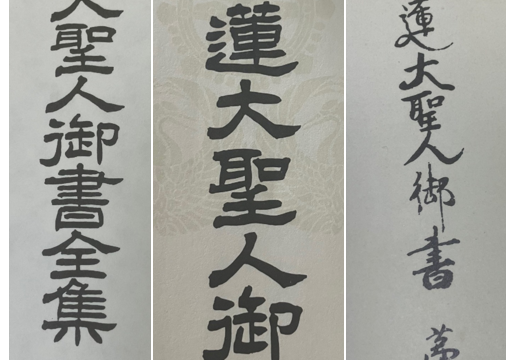 大聖人御書全集
蓮大聖人御
蓮大聖人御書 第